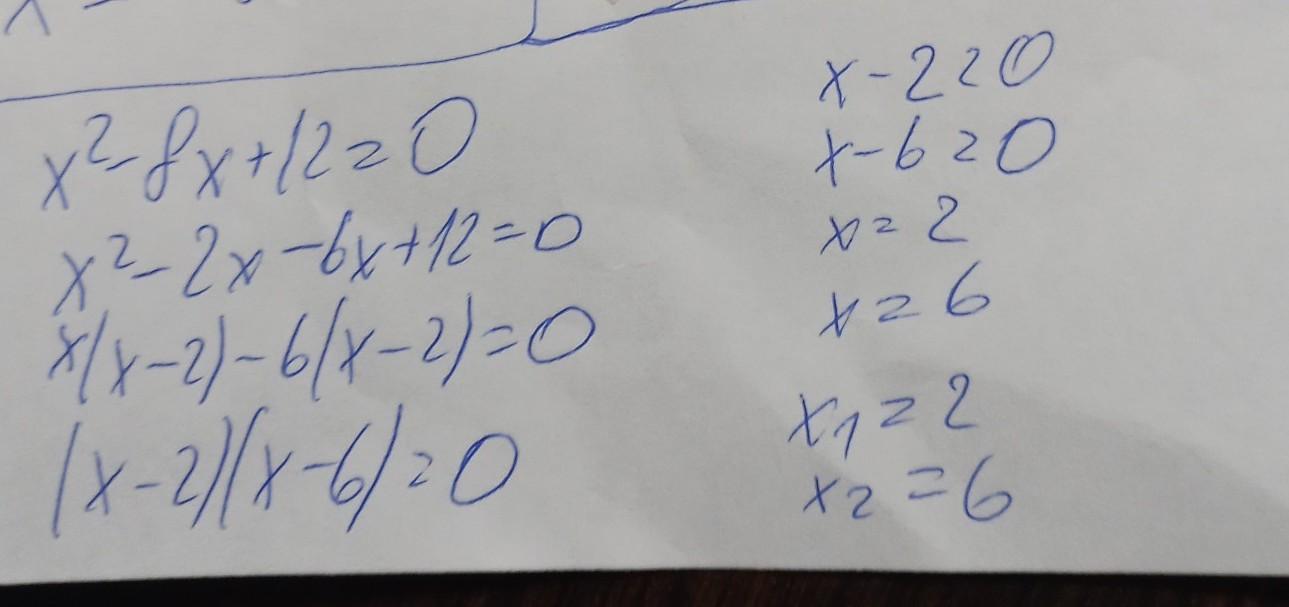 x²-8x+12=0
x²-2x-6x+12=0
x(x-2)-6(x-2)=0
(x-2)(x-6)=0
x-2=0
x-6=0
x=2
x=6
x₁=2
x₂=6